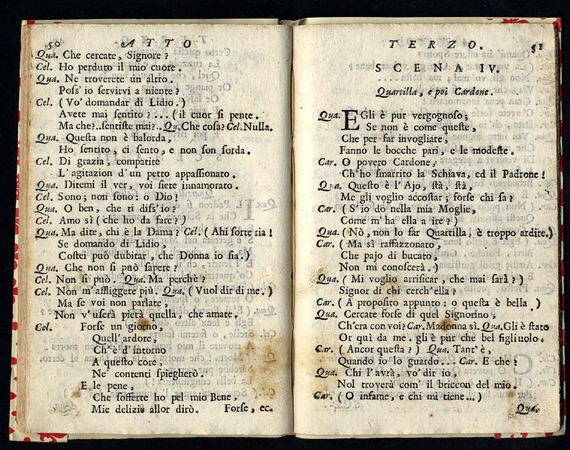 50 ATTO
Qua. Che cercate, Signore?
Cel. Ho perduto il mio cuore.
Qua. Ne troverete un altro.
Poss' io servirvi a niente?
Cel. (Vo' domandar di Lidio.)
Avete mai sentito?... (il cuor si pente.
Ma che?..sentiste mai?..Qu.Che cosa? Cel.Nulla.
Qua. Questa non è balorda,
Ho sentito, ci sento, e non son sorda.
Cel. Di grazia, compatite
L' agitazion d' un petto appassionato.
Qua. Ditemi il ver, voi siete innamorato.
Cel. Sono; non sono: o Dio!
Qua. O ben, che ti diss' io?
Cel. Amo sì (che ho da fare?)
Qua. Ma dite, chi è la Dama? Cel. (Ahi sorte ria!
Se domando di Lidio,
Costei può dubitar, che Donna io sia.)
Qua. Che non si può sapere?
Cel. Non si può. Qua. Ma perchè?
Cel. Non m'affliggete più. Qua. (Vuol dir di me.)
Ma se voi non parlate,
Non v'userà pietà quella, che amate.
Cel. Forse un giorno,
Quell' ardore,
Ch'è d' intorno
A questo core,
Ne' contenti spiegherò.
E le pene,
Che sofferte ho pel mio Bene,
Mie delizie allor dirò. Forse, ec.
TERZO. 51
SCENA IV.
Quartilla, e poi Cardone.
Qua. EGli è pur vergognoso;
Se non è come queste,
Che per far invogliare,
Fanno le bocche pari, e le modeste.
Car. O povero Cardone,
Ch'ho smarrito la Schiava, ed il Padrone!
Qua. Questo è l'Ajo, stà, stà,
Me gli voglio accostar; forse chi sa?
Car. (S'io do nella mia Moglie,
Come n'ha ella a ire?)
Qua. (Nò, non lo far Quartilla, è troppo ardire.)
Car. (Ma sì raffazzonato,
Che pajo di bucato,
Non mi conoscerà.)
Qua. (Mi voglio arrisicar, che mai sarà?)
Signor di chi cerch'ella?
Car. (A proposito appunto: o questa è bella.)
Qua. Cercate forse di quel Signorino,
Ch'era con voi? Car. Madonna sì. Qua. Gli è stato
Or quì da me. gli è pur che bel figliuolo.
Car. (Ancor questa?) Qua. Tant'è,
Quando io lo guardo... Car. E che?
Qua. Chi l'avrà, vo' dir io,
Nol troverà com' il briccon del mio.
Car. (O infame, e chi mi tiene...)
Qua.